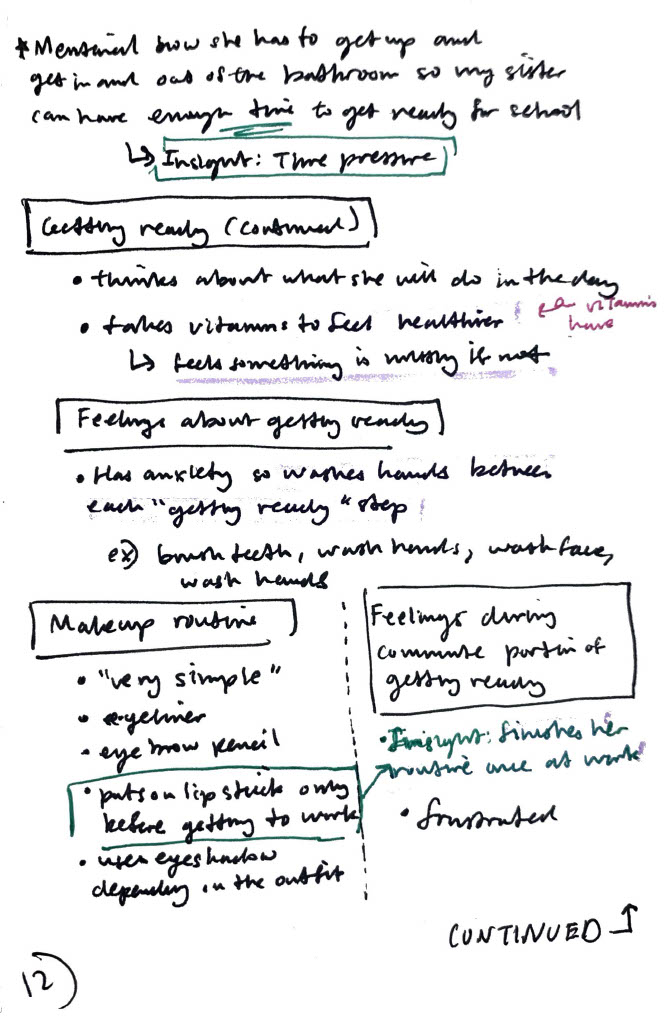 * Mentioned how she has to get up and
get in and out of the bathroom so my sister
can have enough time to get ready for school
↳ Insight: Time pressure
Getting ready (continued)
• thinks about what she will do in the day
• takes vitamins to feel healthier
vitamins
have
↳ feels something is missing if not
Feelings about getting ready
• Has anxiety so washes hands between
each "getting ready" step
ex) brush teeth, wash hands, wash face,
wash hands
Makeup routine
• "very simple"
• eyeliner
• eyebrow pencil
• puts on lipstick only
before getting to work
• uses eyeshadow
depending on the outfit
Feelings during
commute portion of
getting ready
• Insight: finishes her
routine once at work
• frustrated
CONTINUED →
12